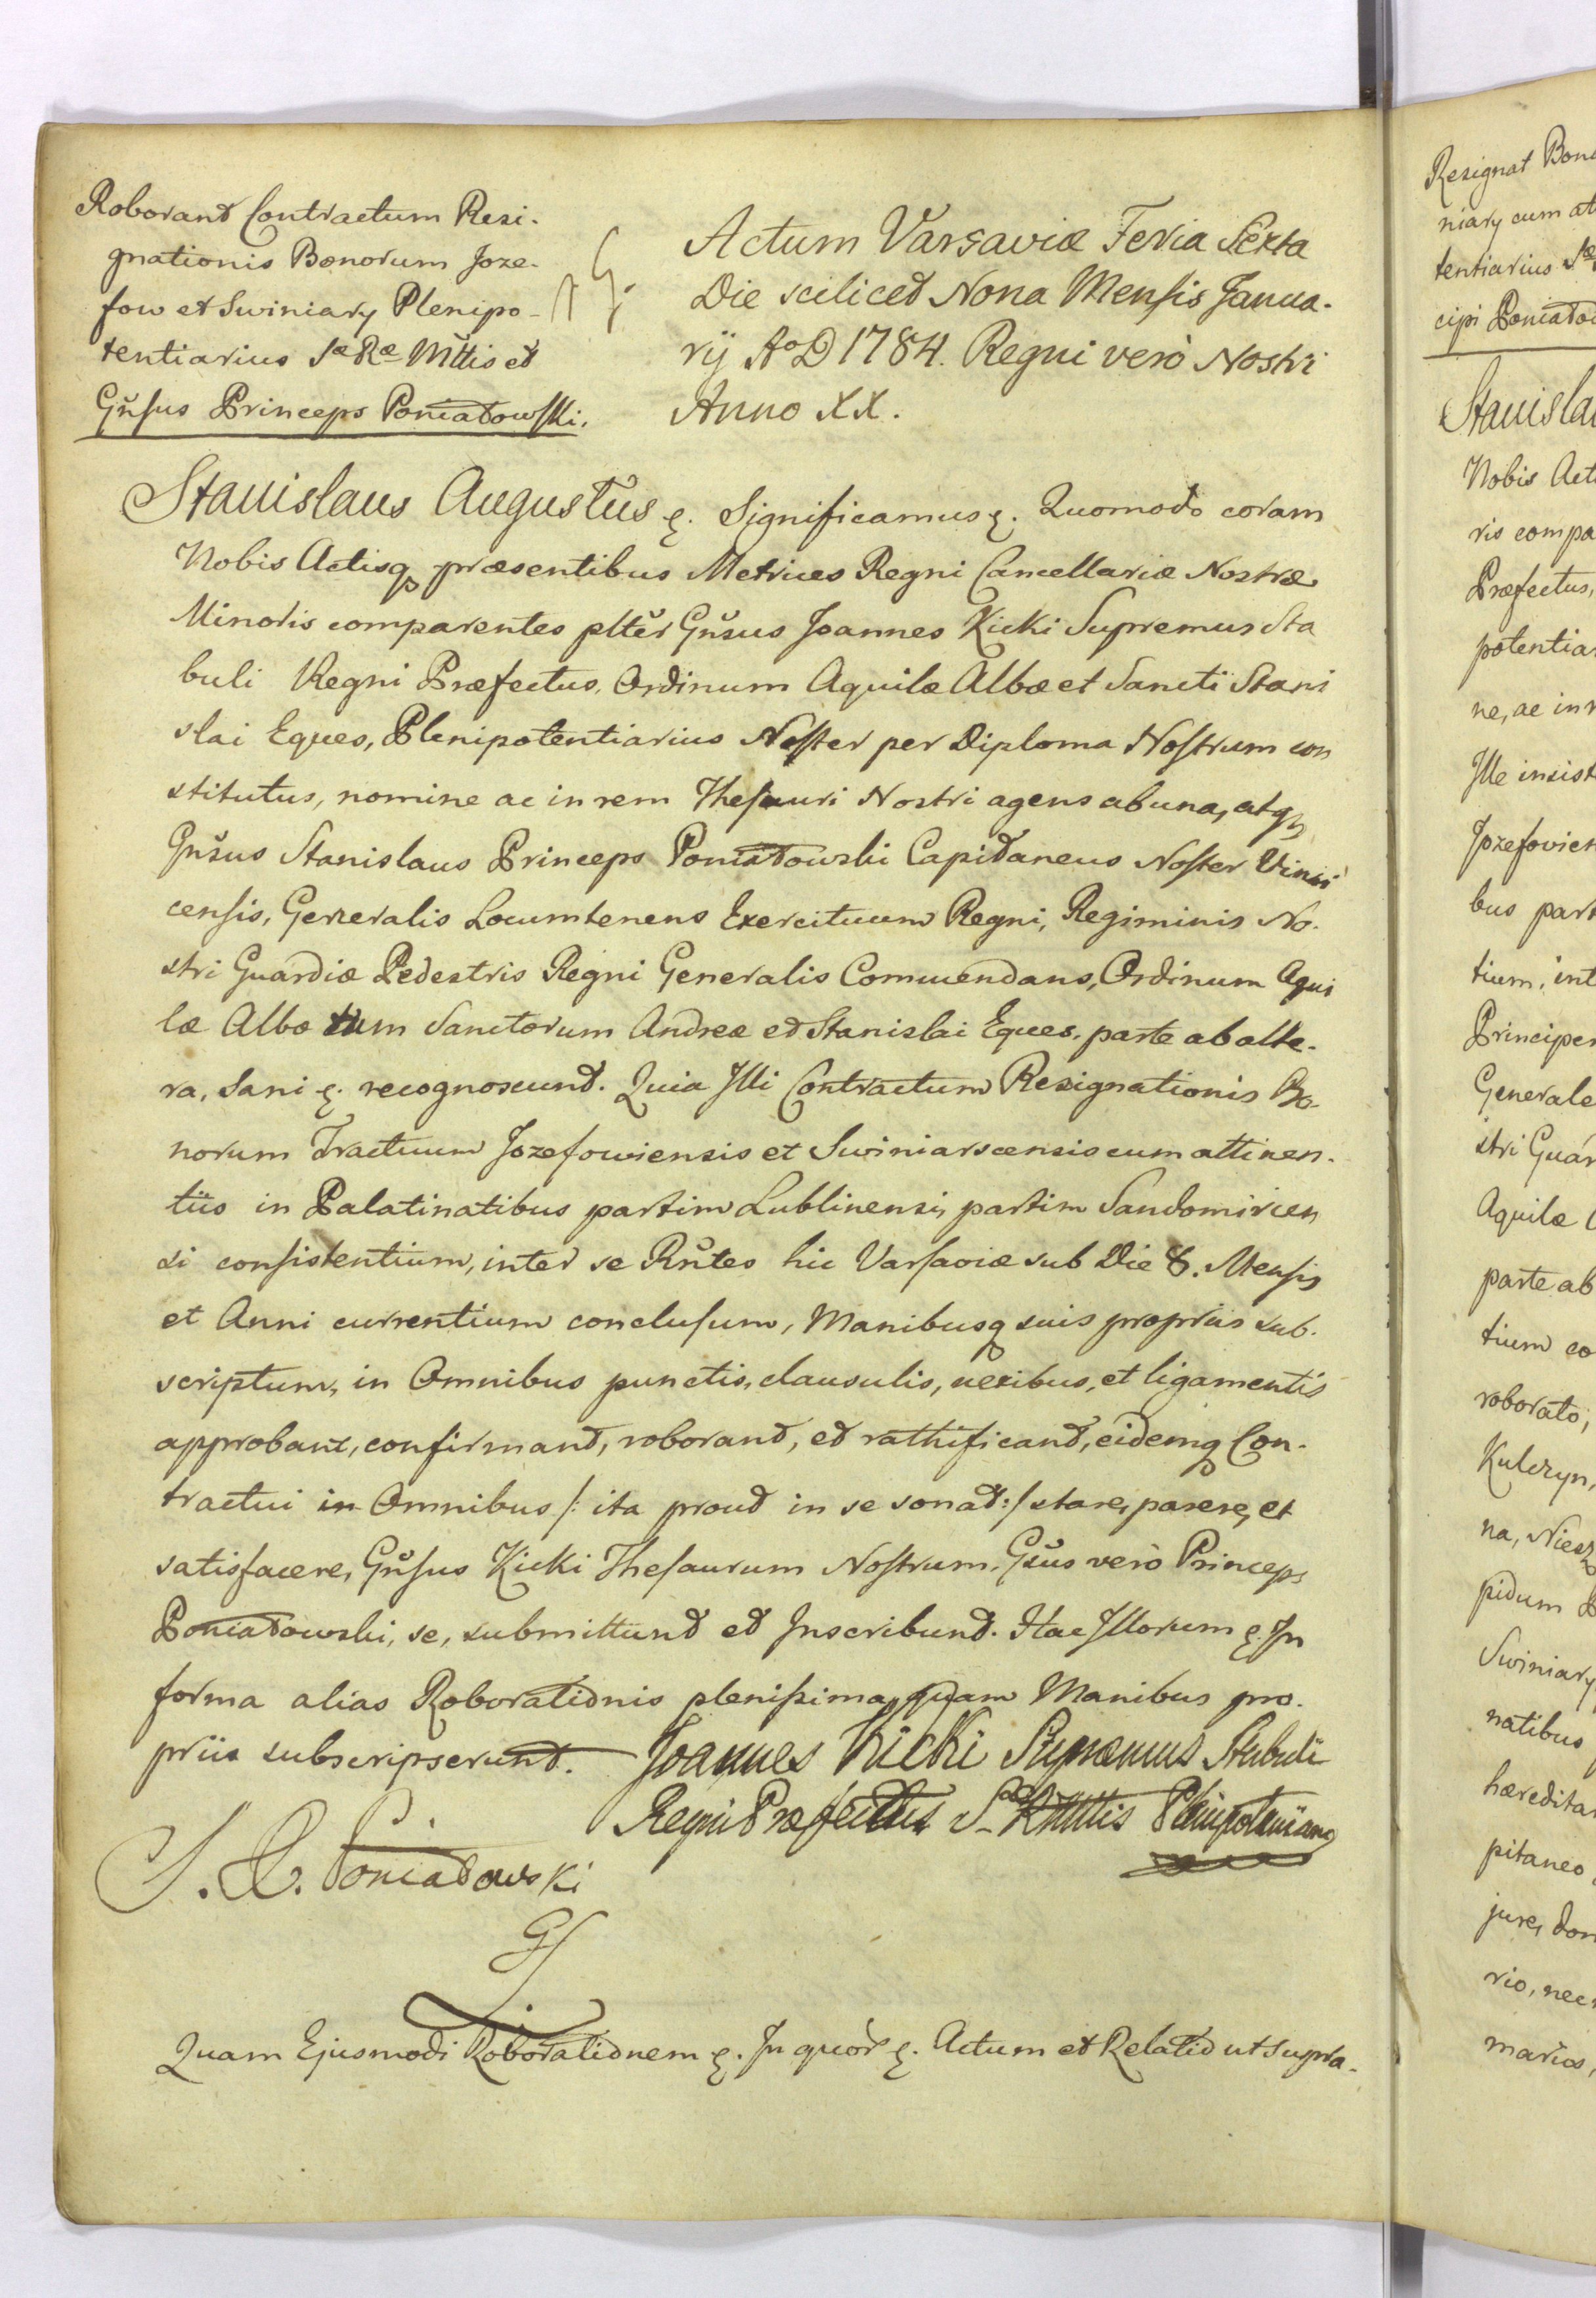 Roborant Contractum Resi-
gnationis Bonorum Joze-
fow et Swiniary Plenipo-
tentiarius Sæ Ræ Mttis et
Gnsus Princeps Poniatowski.
Actum Varsaviæ Feria Sexta
Die scilicet Nona Mensis Janua-
rij Ao D 1784. Regni verò Nostri
Anno XX.
Stanislaus Augustus &. Significamus &. Quomodo coram
Nobis Actisq præsentibus Metrices Regni Cancellariæ Nostræ
Minoris comparentes pltĕr Gnsus Joannes Kicki Supremus Sta
buli Regni Præfectus, Ordinum Aquilæ Albæ et Sancti Stani
slai Eques, Plenipotentiarius Noster per Diploma Nostrum con
stitutus, nomine ac in rem Thesauri Nostri agens ab una, atq
Gnsus Stanislaus Princeps Poniatowski Capitaneus Noster
censis, Generalis Locumtenens Exercituum Regni, Regiminis No-
stri Guardiæ Pedestris Regni Generalis Commendans, Ordinum Aqui
læ Albæ tum Sanctorum Andreæ et Stanislai Eques, parte ab alte-
ra, Sani &. recognoscunt. Quia Illi Contractum Resignationis Bo-
norum Tractuum Jozefowiensis et Swiniarscensis cum attinen-
tiis in Palatinatibus partim Lublinensi, partim Sandomirien
si consistentium, inter se Rntes hic Varsaviæ sub Die 8. Mensis
et Anni currentium conclusum, Manibusq suis propriis sub-
scriptum, in Omnibus punctis, clausulis, nexibus, et ligamentis
approbant, confirmant, roborant, et rathificant, eidemq Con-
tractui in Omnibus /: ita prout in se sonat :/ stare, parere, et
satisfacere, Gnsus Kicki Thesaurum Nostrum, Gsus verò Princeps
Poniatowski, se, submittunt et Inscribunt. Hac Illorum &. In
forma alias Roborationis plenissima, quam Manibus pro-
priis subscripserunt. Joannes Kicki Supræmus Stabuli
Regni Præfectus Sæ R Mttis Plenipotentiarius
S. P. Poniatowski
Quam Ejusmodi Roborationem &. In quor &. Actum et Relatio ut supra.
Resignat Bon
niary cum at
tentiarius Sæ
cipi Poniato
Stanisla
Nobis Act
ris compa
Præfectus,
potentia
ne, ac in
Ille insist
Jozefovien
bus part
tium, int
Principe
Generale
stri Guar
Aquilæ
parte ab
tium co
roborato,
Kulczyn,
na, Niesz
pidum
Swiniary
natibus
hæredita
pitaneo
jure, don
rio, nec
marios,